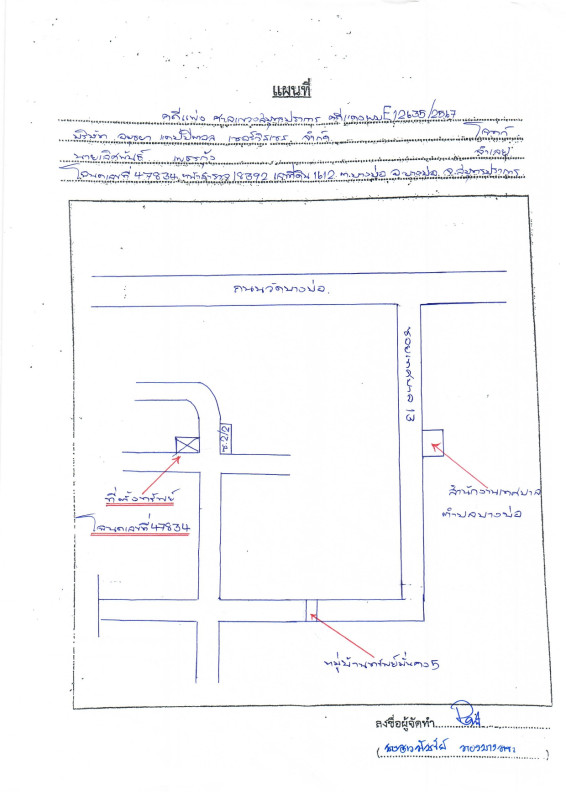 แผนที่
คดีแพ่ง ศาลแขวงสมุทรปราการ คดีแดงผบE12635/2567
บริษัท อยุธยา แคปปิตอล เซอร์วิสเซส จำกัด โจทก์
นายเลิศพันธ์ เพชรกัว จำเลย
โฉนดเลขที่ 47834 หน้าสำรวจ 18392 เลขที่ดิน 1612 ต.บางบ่อ อ.บางบ่อ จ.สมุทรปราการ
ถนนรัตนบางบ่อ
ซอยเทศบาล 13
ซ.2/2
ที่ตั้งทรัพย์
โฉนดเลขที่ 47834
สำนักงานเทศบาล
ตำบลบางบ่อ
หมู่บ้านทรัพย์มั่นคง5
ลงชื่อผู้จัดทำ